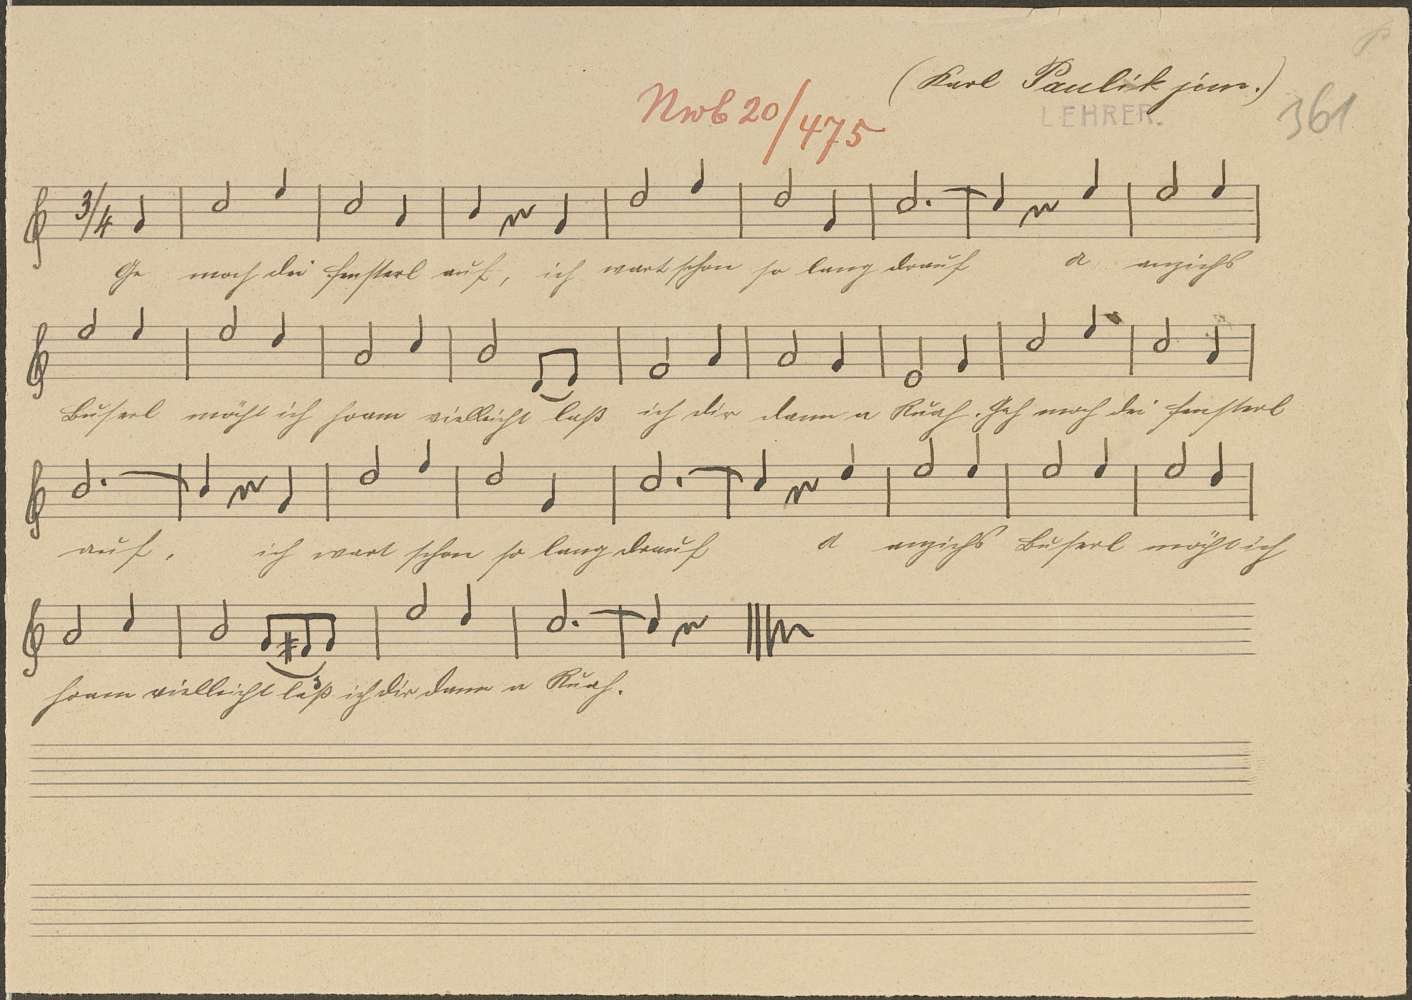 (Karl Paulik jun.)
Nwb 20/475
LEHRER.
361
3/4
Ge mach dei Fensterl auf, ich wart schon so lang drauf a anzichs
Buserl möcht ich haam vielleicht laß ich dir dann a Ruah. Geh mach dei Fensterl
auf, ich wart schon so lang drauf a anzichs Buserl möcht ich
3
haam vielleicht laß ich dir dann a Ruah.